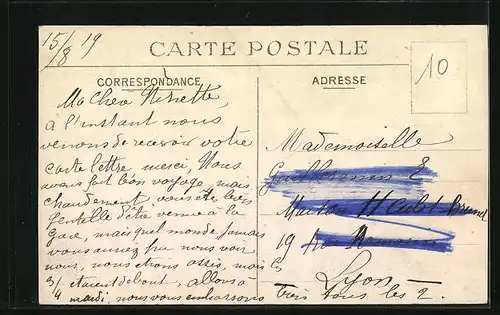 15/8 19
CARTE POSTALE
10
CORRESPONDANCE
ADRESSE
Ma Chère Ninette,
à l'instant nous
venons de recevoir votre
carte lettre, merci, Nous
avons fait bon voyage, mais
chaudement, vous été bien
gentille d'être venue à la
gare, mais quel monde jamais
vous auriez pu nous voir
nous, nous étions assis, mais les
3/4 étaient debout, allons à
mardi, nous vous embrassons
tris tous les 2.
Mademoiselle
Maison
19 Rue
Lyon